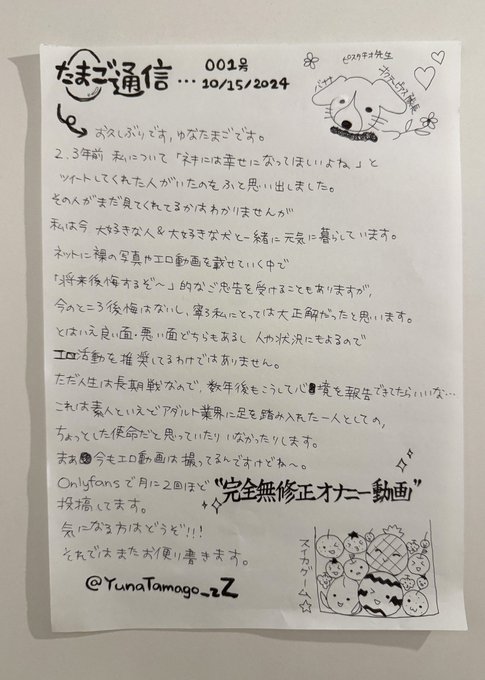 たまご通信 … 001号
10/15/2024
ピスタチオ先生
バナナ
お久しぶりです,ゆなたまごです。
2、3年前 私について「ネキには幸せになってほしいよね」と
ツイートしてくれた人がいたのをふと思い出しました。
その人がまだ見てくれてるかはわかりませんが
私は今 大好きな人&大好きな犬と一緒に元気に暮らしています。
ネットに裸の写真やエロ動画を載せていく中で
「将来後悔するぞ〜」的なご忠告を受けることもありますが,
今のところ後悔はないし、寧ろ私にとっては大正解だったと思います。
とはいえ良い面・悪い面どちらもあるし 人や状況にもよるので
エロ活動を推奨してるわけではありません。
ただ人生は長期戦なので、数年後もこうして心境を報告できてたらいいな…
これは素人といえどアダルト業界に足を踏み入れた一人としての,
ちょっとした使命だと思っていたりいなかったりします。
まあ今もエロ動画は撮ってるんですけどね〜。
Onlyfansで月に2回ほど"完全無修正オナニー動画"
投稿してます。
気になる方はどうぞ!!!
それではまたお便り書きます。
@YunaTamago_zZ
スイカゲーム☆